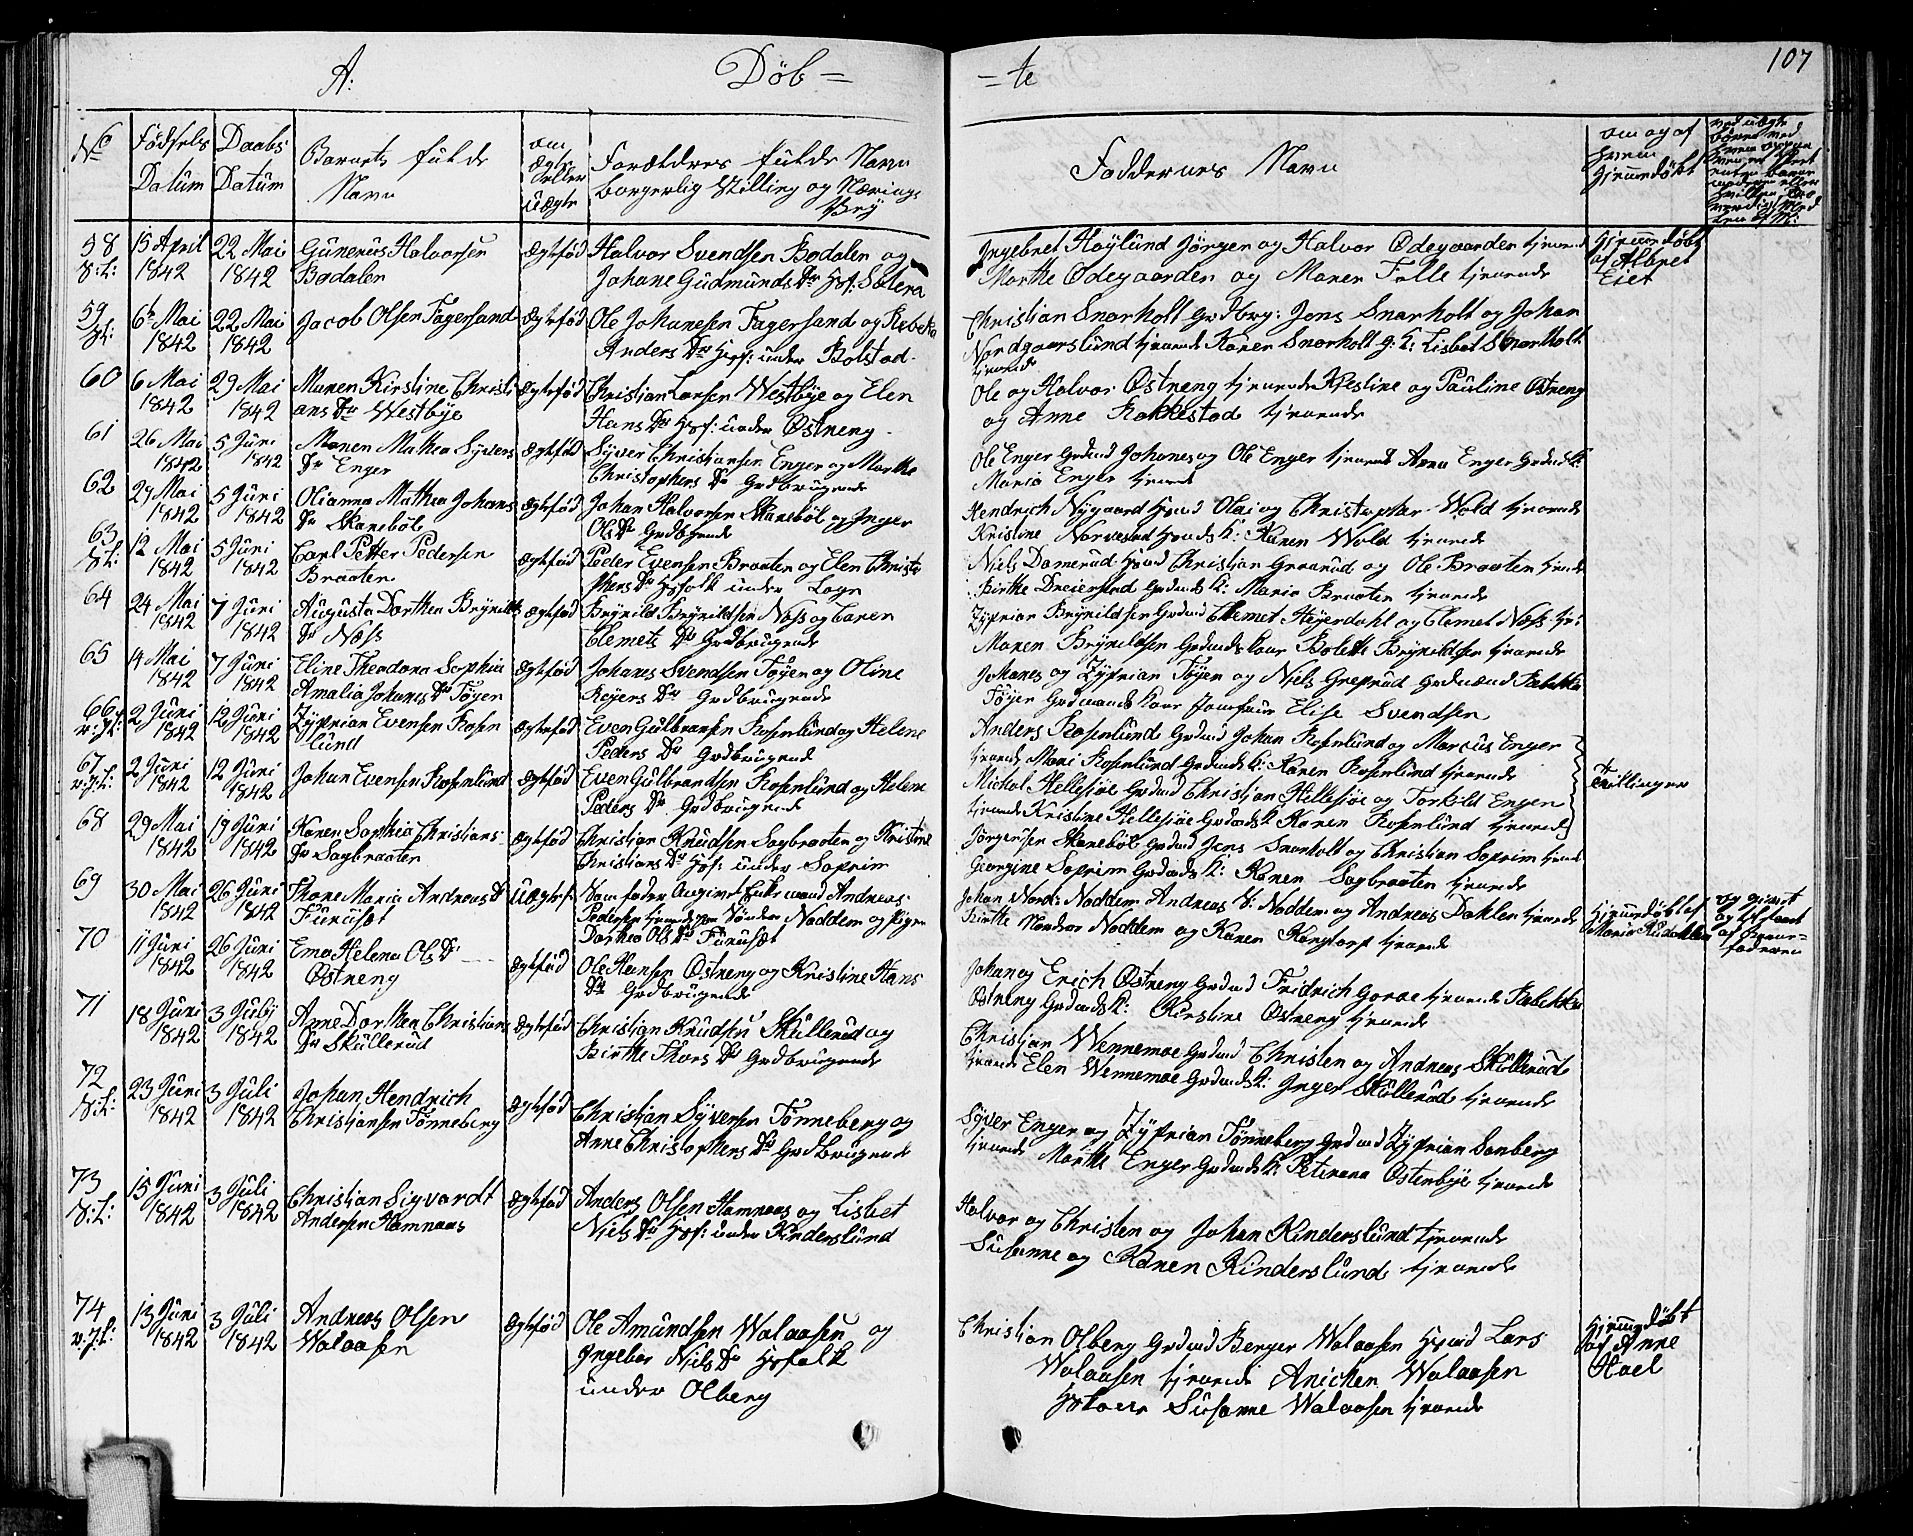 A: Döb= =te 107
No
Födsels Datum
Daabs Datum
Barnets fulde Navn
om Ægte eller Uægte
Forældres fulde Navn borgerlig Stilling og Nærings Vey
Faddernes Navn
om og af hvem hjemmedöbt
58 15 April 1842 22 Mai 1842 Gunerius Halvorsen Bodalen Ægtefød Halvor Svendsen Bodalen og Johane Gudmunds Dr Hsf: Sætera
Ingebret Høylund Jørgen og Halvor Ødegaarden tjenende Marthe Ødegaarden og Maren Falle tjenende
Hjemmedøbt af Albret Eiet
59 6te Mai 1842 22 Mai 1842 Jacob Olsen Fagersand Ægtefød Ole Johanesen Fagersand og Rebeka Anders Dr Hsf: under Bolstad
Christian Snarholt Grdbrg: Jens Snarholt og Johan Nordgaarslund tjenende Karen Snarholt g: K: Lisbet Snarholt tjenende
60 6 Mai 1842 29 Mai 1842 Maren Kirstine Christians Dr Westbye Ægtefød Christian Larsen Westbye og Elen Hans Dr Hsf: under Østreng
Ole og Halvor Østreng tjenende Kjestine og Pauline Østreng og Anne Rakkestad tjenende
61 26 Mai 1842 5 Juni 1842 Maren Mathea Syvers Dr Enger Ægtefød Syver Christiansen Enger og Marthe Christophers Dr Grdbrugende
Ole Enger Grdmd Johanes og Ole Enger tjenende Anne Enger Grdmds K: Maria Enger tjenende
62 29 Mai 1842 5 Juni 1842 Olianna Mathea Johans Dr Skanebøl Ægtefød Johan Halvorsen Skanebøl og Inger Ols Dr Grdbrgende
Hendrich Nygaard Hsmd Olai og Christopher Wold tjenende Kristine Norvestad Hsmds K: Karen Wold tjenende
63 12 Mai 1842 5 Juni 1842 Carl Petter Pedersen Braaten Ægtefød Peder Evensen Braaten og Elen Christophers Dr Hsfolk under Løgn
Niels Damerud Hsmd Christian Graarud og Ole Braaten tjende Birthe Dreiersand Grdmds K: Maria Braaten tjenende
64 24 Mai 1842 7 Juni 1842 Augusta Dorthea Brynilds Dr Næss Ægtefød Brynild Brynildsen Næss og Caren Clemets Dr Grdbrugende
Zyprian Brynildsen Grdmd Clemet Heyerdahl og Clemet Næss tje: Maren Brynildsen Grdmds Kone Bolette Brynildsen tjenende
65 14 Mai 1842 7 Juni 1842 Eline Theodora Sophia Amalia Johanes Dr Tøyen Ægtefød Johanes Svendsen Tøyen og Oline Reyers Dr Grdbrugende
Johanes og Zyprian Tøyen og Niels Greprud Grdmænd Rebekka Tøyen Grdmands Kone Jomfrue Elise Svendsen
66 2 Juni 1842 12 Juni 1842 Zyprian Evensen Rosenlund Ægtefød Even Gulbransen Rosenlund og Helene Peders Dr Grdbrugend
Anders Rosenlund Grdmd Johan Rosenlund og Marcus Enger tjenende Mari Rosenlund Grdmds K: Karen Rosenlund tjenende
67 2 Juni 1842 12 Juni 1842 Johan Evensen Rosenlund Ægtefød Even Gulbrandsen Rosenlund og Helene Peders Dr Grdbrugende
Michal Hellesjøe Grdmd Christjan Hellesjøe og Torkild Engen tjenende Kristine Hellesjøe Grdmds K: Karen Rosenlund tjenende
Tvillinger
68 29 Mai 1842 19 Juni 1842 Karen Sophia Christians Dr Sagbraaten Ægtefød Christian Knudsen Sagbraaten og Kristine Christians Dr Hsf: under Soprim
Jørgensen Skanebøl Grdmd Jens Snarholt og Christian Soprim tjend Georgine Soprim Grdmds K: Karen Sagbraaten tjenende
69 30 Mai 1842 26 Juni 1842 Thone Maria Andreas Dr Furuset Uægtef: Som fader Angivet Enkemand Andreas Pedersen Noddem og Pigen Dorthea Ols Dr Furusæt
Johan Nord: Noddem Andreas S: Noddem og Andreas Daklen tjenende Birthe Nordre Noddem og Karen Kongtorp tjenende
Hjemmedøbt af Maria Rudakken
70 11 Juni 1842 26 Juni 1842 Ema Helena Ols Dr Østreng Ægtefød Ole Hansen Østreng og Kristine Hans Dr Grdbrugende
Johan og Erich Østreng Grdmd Fridrich Goroe tjenende Rebekka Østreng Grdmds K: Kirstine Østreng tjenende
71 18 Juni 1842 3 July 1842 Anne Dorthea Christians Dr Skullerud Ægtefød Christjan Knudsen Skullerud og Birthe Thors Dr Grdbrugende
Christjan Wennemoe Grdmd Christen og Andreas Skullerud tjenende Elen Wennemoe Grdmds K: Inger Skullerud tjenende
72 23 Juni 1842 3 Juli 1842 Johan Hendrich Christjansen Tønneberg Ægtefød Christjan Syversen Tønneberg og Anne Christophers Dr Grdbrugende
Syver Enger og Zyprian Tønneberg Grdmd Zyprian Sanberg tjenende Marthe Enger Grdmds K: Petirena Østenbye tjenende
73 15 Juni 1842 3 Juli 1842 Christian Sigvardt Andersen Hamnaas Ægtefød Anders Olsen Hamnaas og Lisbet Niels Dr Hsf: under Kinderslund
Halvor og Christen og Johan Kinderslund tjenende Susanne og Karen Kinderslund tjenende
74 13 Juni 1842 3 Juli 1842 Andreas Olsen Walaasen Ægtefød Ole Amundsen Walaasen og Ingebor Niels Dr Hsfolk under Olberg
Christian Olberg Grdmd Berger Walaasen Hsmd Lars Walaasen tjenende Anichen Walaasen Hskone Susanne Walaasen tjenende
Hjemmedøbt af Anne Hael